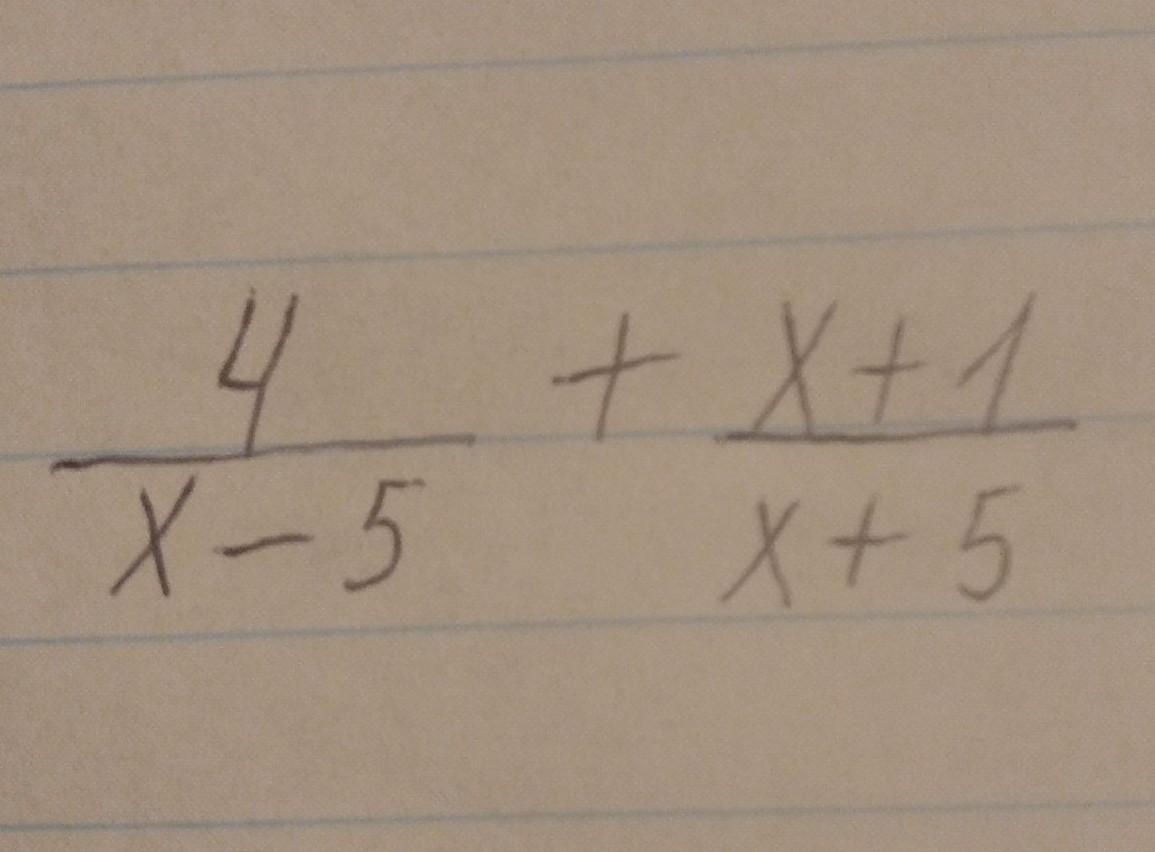 4/(x-5) + (x+1)/(x+5)